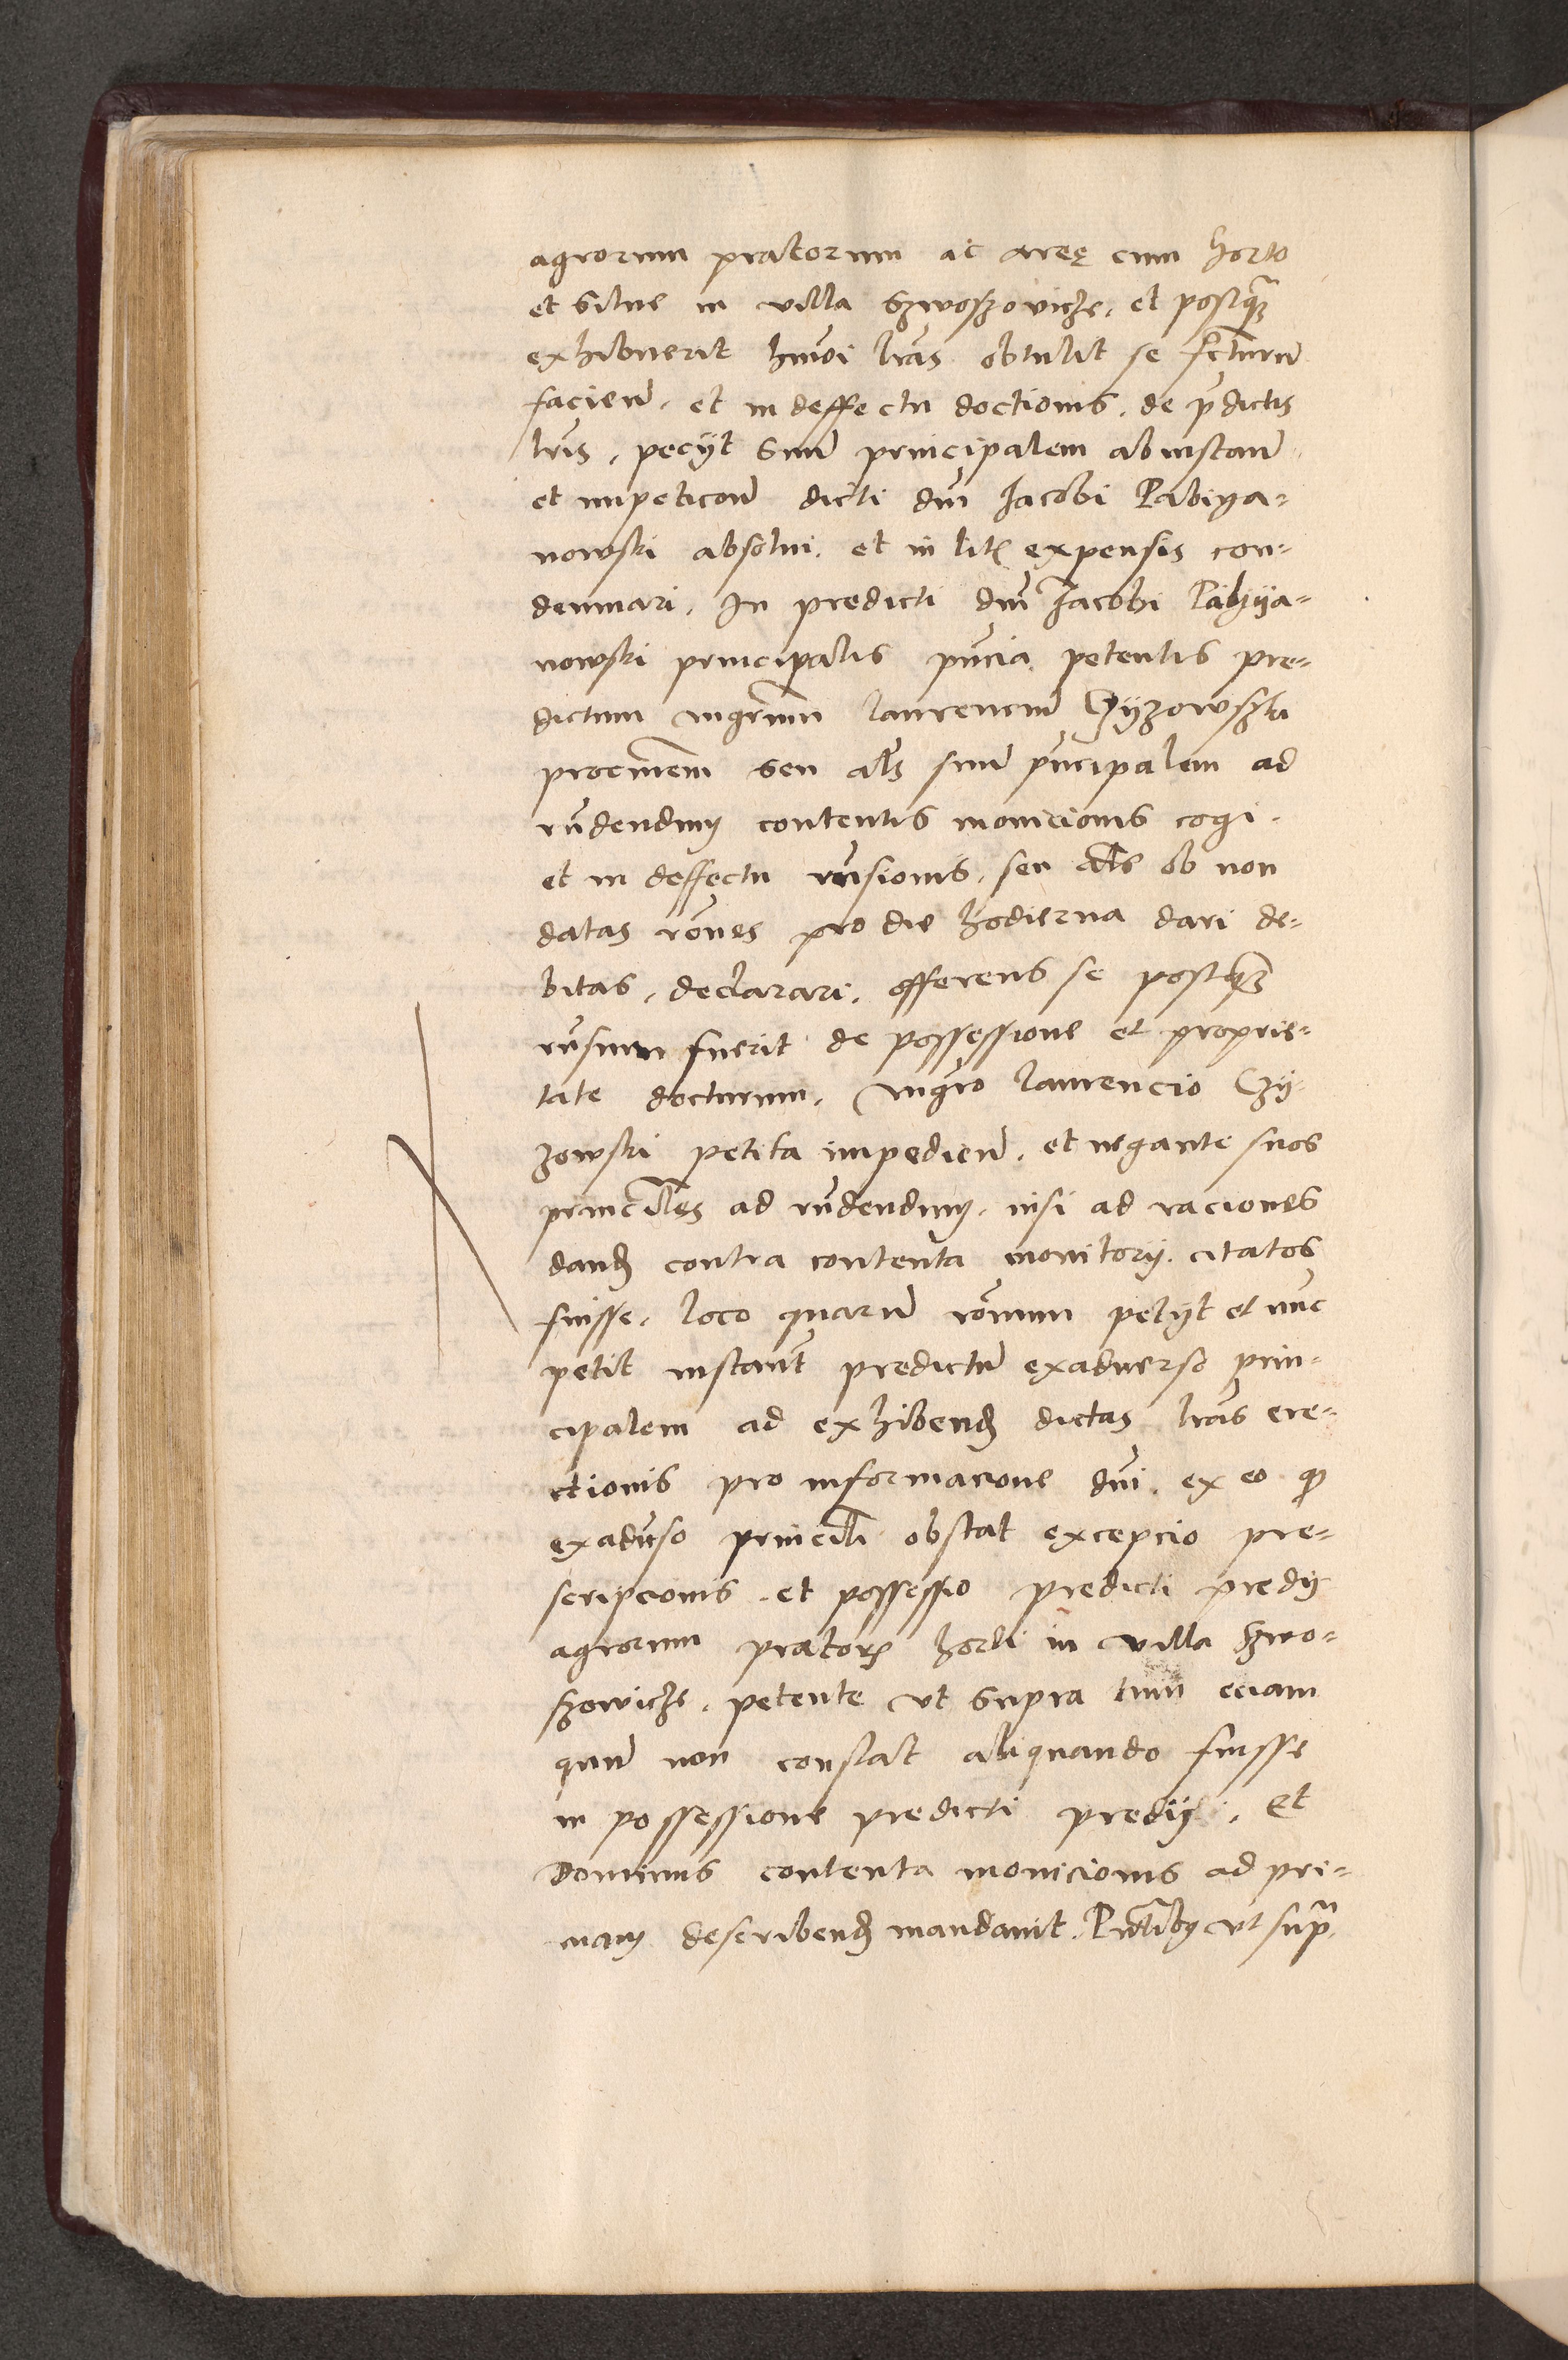 agrorum pratorum ac areę cum horto
et situs in villa Szwoszoviche, et postq̃
exhibuerit hm̃oi lr̃as obtulit se fctur̃u
facien̄, et in deffectu doctionis, de p̄dictis
lr̃is, peciit suū principalem ab instan̄
et impeticoн̄ dicti dn̄i Jacobi Pabiya-
nowski absolui, et in lit̄ expensis con-
demnari, In predicti dn̄i Jacobi Pabyya-
nowski principalis pn̄cia petentis pre-
dictum mgr̄um Laurenciū Czyzowszki
procur̄em seu als̄ suū pn̄cipalem ad
rn̄dendum contentis monicionis cogi,
et in deffectu rn̄sionis, seu als̄ ob non
datas rōnes pro die hodierna dari de-
bitas, declarari, offerens se postq̃
rn̄sum fuerit de possessione et proprie-
tate docturum, mgr̄o Laurencio Czy-
zowski petita impedien̄, et negante suos
princiles̄ ad rn̄dendum, nisi ad raciones
dand̄ contra contenta monitorij citatos
fuisse, loco quarū rōnum petijt et nūc
petit instant̄ predictū exaduerso prin-
cipalem ad exhibend̄ dictas lr̄as ere-
ctionis pro informacione dn̄i, ex eo q̄
exadūso princilī obstat excepcio pre-
scripcionis, et possessio predicti predij
agrorum pratorꝝ horti in villa Szwo-
szowiche, petente vt supra tum eciam
quū non constat aliquando fuisse
in possessione predicti predij, Et
Dominus contenta monicionis ad pri-
mam describend̄ mandauit, Pn̄tibꝰ vt supr̃